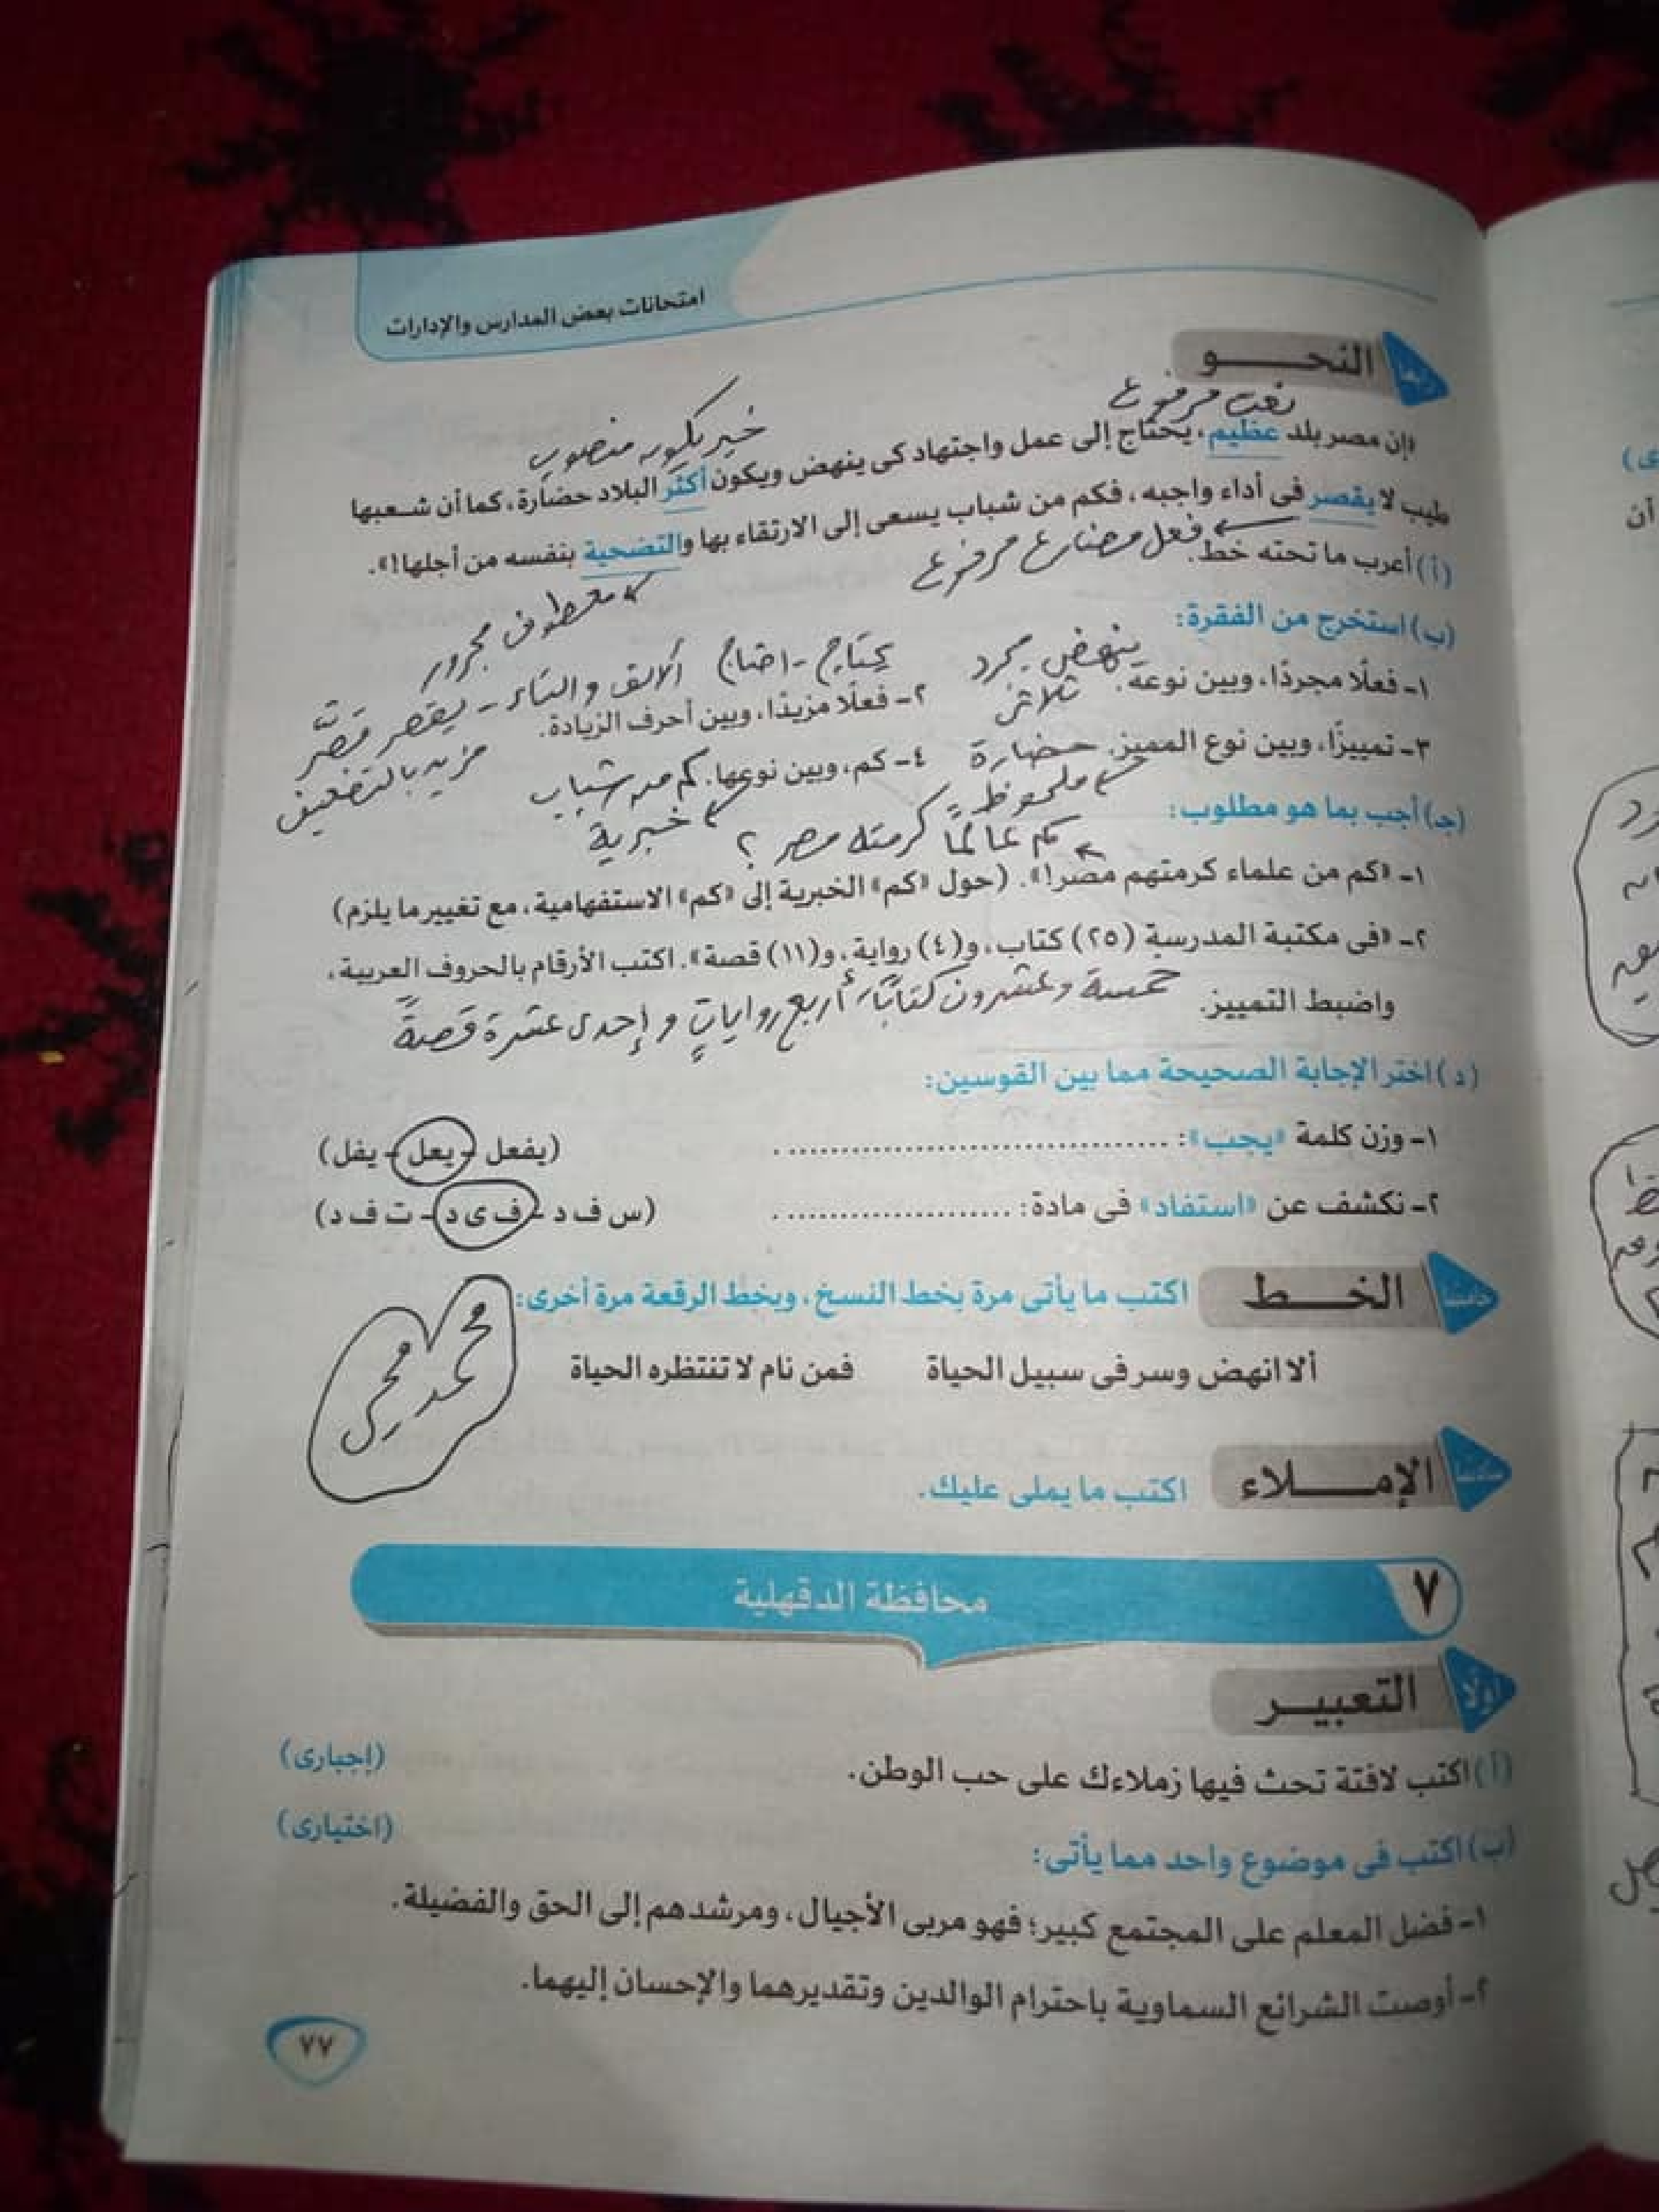 امتحانات بعض المدارس والإدارات
رابعا
النحو
نعت مرفوع
خبر يكون منصوب
«إن مصر بلد عظيم، يحتاج إلى عمل واجتهاد كى ينهض ويكون أكثر البلاد حضارة، كما أن شعبها
طيب لا يقصر فى أداء واجبه، فكم من شباب يسعى إلى الارتقاء بها والتضحية بنفسه من أجلها!».
(أ) أعرب ما تحته خط.
فعل مضارع مرفوع
معطوف مجرور
(ب) استخرج من الفقرة:
١- فعلًا مجردًا، وبين نوعه.
ينهض مجرد ثلاثى
٢- فعلًا مزيدًا، وبين أحرف الزيادة.
يحتاج - احتاج الألف والتاء - يقصر قصَّر
مزيد بالتضعيف
٣- تمييزًا، وبين نوع المميز.
حضارة
ملحوظ
٤- كم، وبين نوعها.
كم من شباب
خبرية
(جـ) أجب بما هو مطلوب:
كم عالمًا كرمته مصر؟
١- «كم من علماء كرمتهم مصر!». (حول «كم» الخبرية إلى «كم» الاستفهامية، مع تغيير ما يلزم)
٢- «فى مكتبة المدرسة (٢٥) كتاب، و(٤) رواية، و(١١) قصة». اكتب الأرقام بالحروف العربية،
واضبط التمييز.
خمسة وعشرون كتابًا، أربع رواياتٍ وإحدى عشرة قصةً
(د) اختر الإجابة الصحيحة مما بين القوسين:
١- وزن كلمة «يجب»: .................................... . (يفعل - يعل - يفل)
٢- نكشف عن «استفاد» فى مادة: ...................... . (س ف د - ف ى د - ت ف د)
خامسا
الخط
اكتب ما يأتى مرة بخط النسخ، وبخط الرقعة مرة أخرى:
ألا انهض وسر فى سبيل الحياة فمن نام لا تنتظره الحياة
محمد محى
سادسا
الإملاء
اكتب ما يملى عليك.
٧
محافظة الدقهلية
أولا
التعبير
(أ) اكتب لافتة تحث فيها زملاءك على حب الوطن. (إجبارى)
(ب) اكتب فى موضوع واحد مما يأتى: (اختيارى)
١- فضل المعلم على المجتمع كبير؛ فهو مربى الأجيال، ومرشدهم إلى الحق والفضيلة.
٢- أوصت الشرائع السماوية باحترام الوالدين وتقديرهما والإحسان إليهما.
٧٧